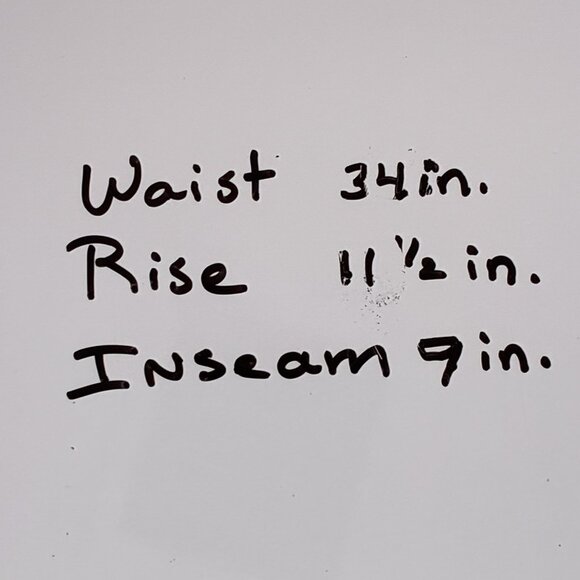 Waist 34in.
Rise 11 1/2 in.
Inseam 9in.